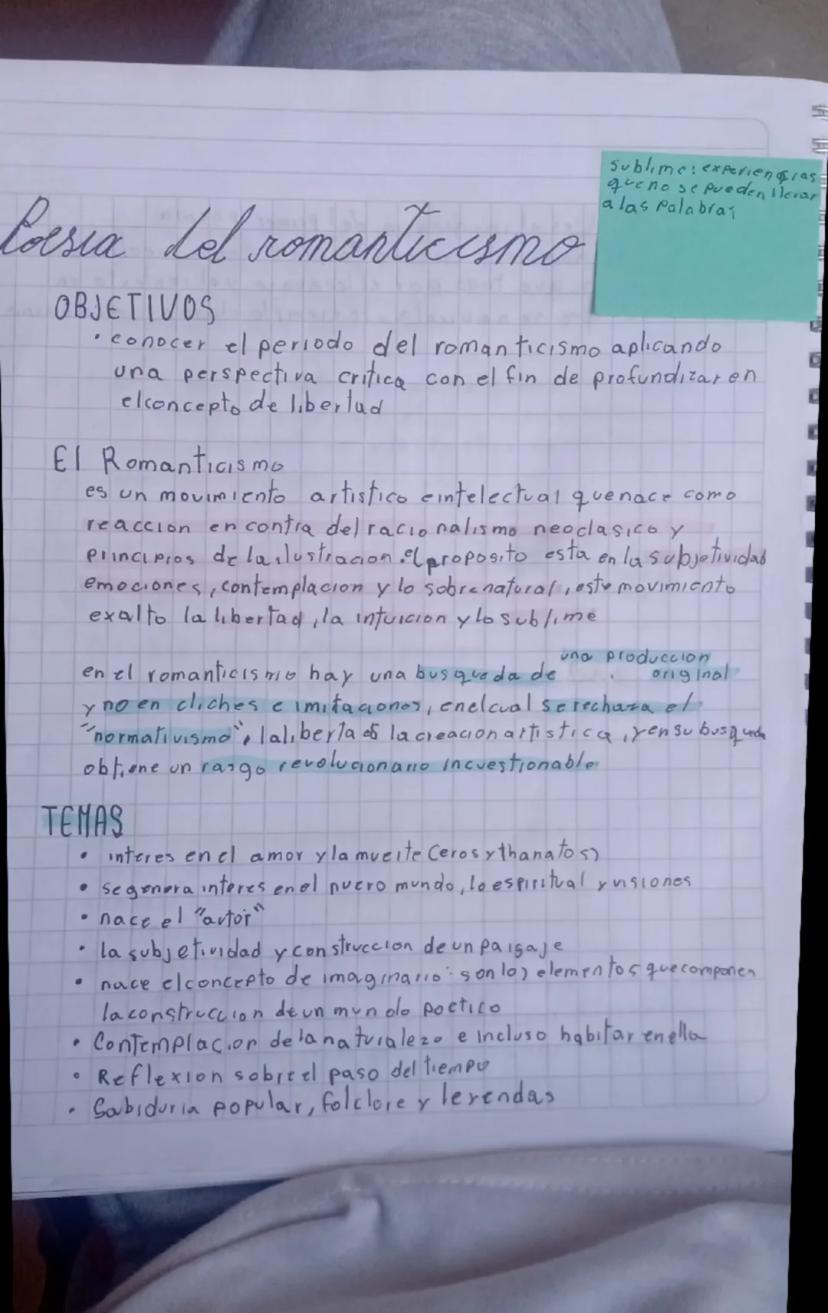 sublime: experiencias
que no se pueden llevar
a las palabras
Poesia del romanticismo
OBJETIVOS
• conocer el periodo del romanticismo aplicando
una perspectiva critica con el fin de profundizar en
el concepto de libertad
El Romanticismo
es un movimiento artistico e intelectual que nace como
reaccion en contra del racionalismo neoclasico y
principios de la ilustracion. el proposito esta en la subjetividad
emociones, contemplacion y lo sobrenatural, este movimiento
exalto la libertad, la intuicion y lo sublime
en el romanticismo hay una busqueda de una produccion original
y no en cliches e imitaciones, en el cual se rechaza el
"normativismo", la liberta es la creacion artistica, y en su busqueda
obtiene un rasgo revolucionario incuestionable
TEMAS
• interes en el amor y la muerte (eros y thanatos)
• se genera interes en el nuevo mundo, lo espiritual y visiones
• nace el "autor"
• la subjetividad y construccion de un paisaje
• nace el concepto de imaginario: son los elementos que componen
la construccion de un mundo poetico
• Contemplacion de la naturaleza e incluso habitar en ella
• Reflexion sobre el paso del tiempo
• Sabiduria popular, folclore y leyendas